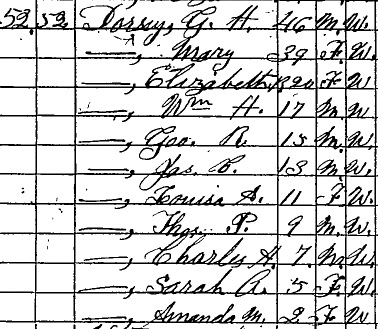 52 52 Dorsey, G. H. 46 M. W.
—, Mary 39 F. W.
—, Elizabeth F. W.
—, Wm H. 17 M. W.
—, Geo. R. 15 M. W.
—, Jas. C. 13 M. W.
—, Louisa A. 11 F. W.
—, Thos. P. 9 M. W.
—, Charly H. 7 M. W.
—, Sarah A. 5 F. W.
—, Amanda M. 2 F. W.